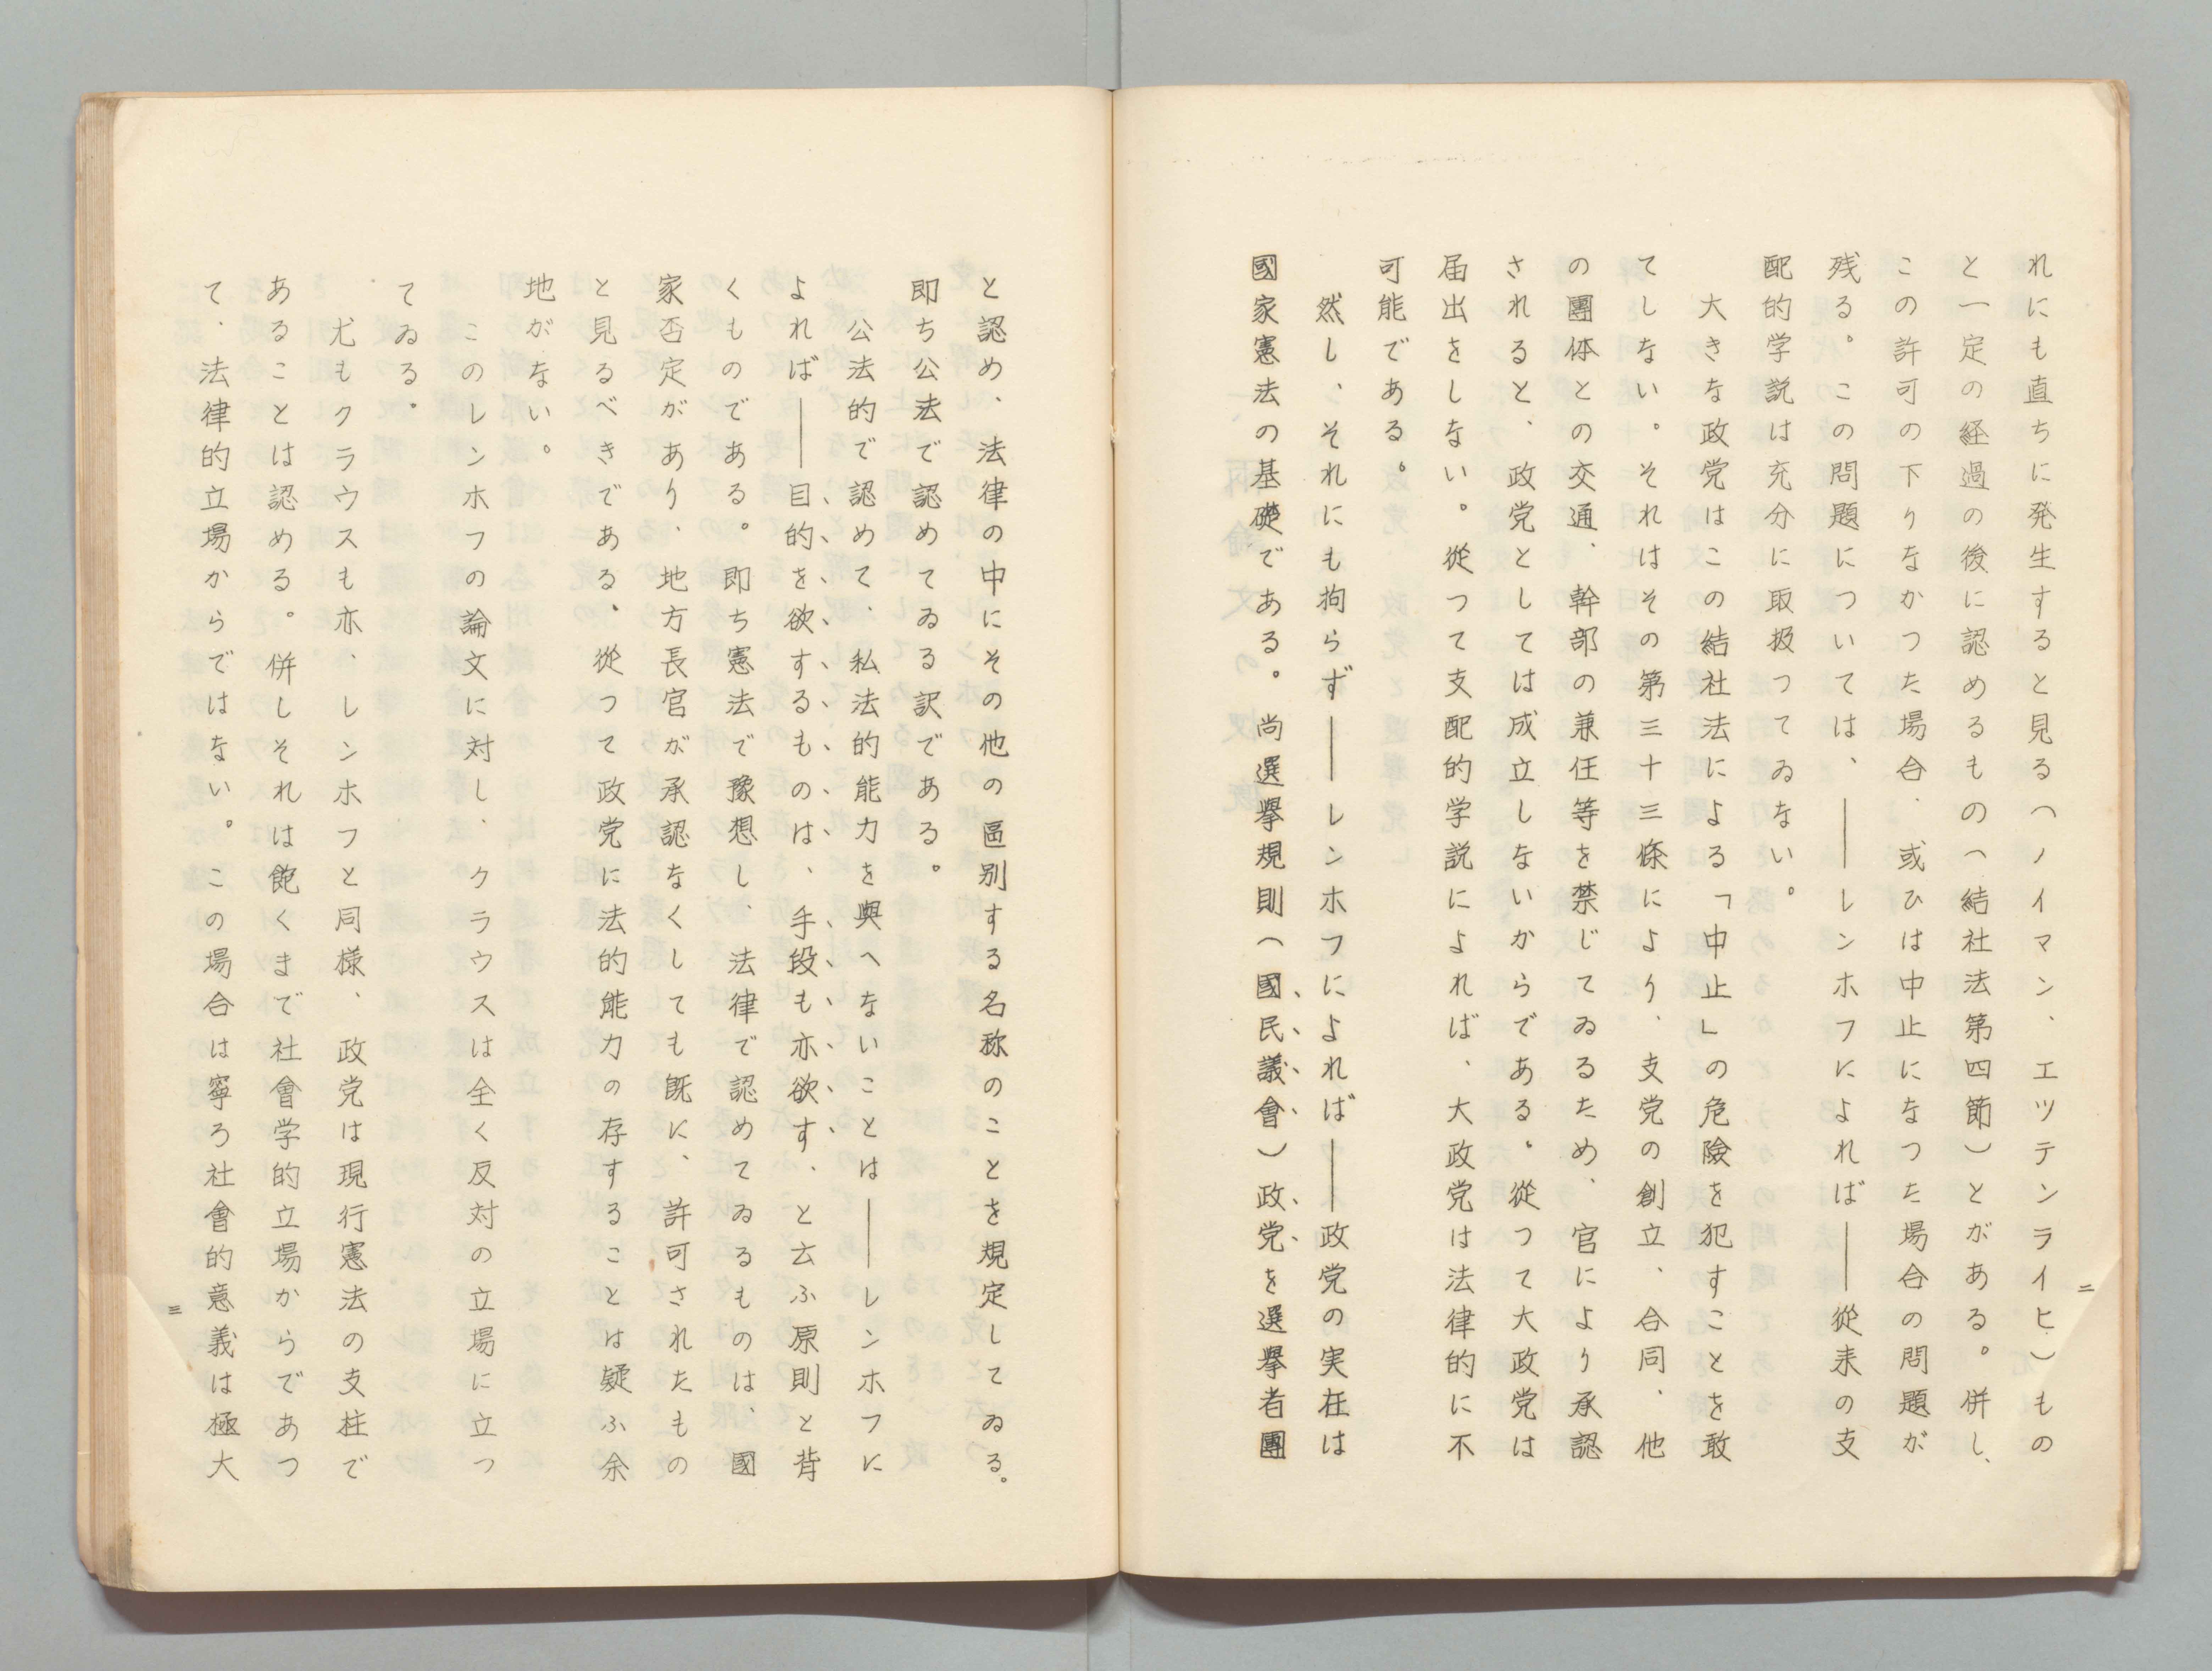 れにも直ちに発生すると見る（ノイマン、エツテンライヒ）もの
と一定の経過の後に認めるもの（結社法第四節）とがある。併し、
この許可の下りなかつた場合、或ひは中止になつた場合の問題が
残る。この問題については、――レンホフによれば――從来の支
配的学説は充分に取扱つてゐない。
大きな政党はこの結社法による「中止」の危險を犯すことを敢
てしない。それはその第三十三條により、支党の創立、合同、他
の團体との交通、幹部の兼任等を禁じてゐるため、官により承認
されると、政党としては成立しないからである。從つて大政党は
届出をしない。從つて支配的学説によれば、大政党は法律的に不
可能である。
然し、それにも拘らず――レンホフによれば――政党の実在は
國家憲法の基礎である。尚選擧規則（國民議會）政党を選擧者團
二
と認め、法律の中にその他の區別する名称のことを規定してゐる。
即ち公法で認めてゐる訳である。
公法的で認めて、私法的能力を與へないことは――レンホフに
よれば――目的を欲するものは、手段も亦欲す、と云ふ原則と背
くものである。即ち憲法で豫想し、法律で認めてゐるものは、國
家否定があり、地方長官が承認なくしても既に、許可されたもの
と見るべきである、從つて政党に法的能力の存することは疑ふ余
地がない。
このレンホフの論文に対し、クラウスは全く反対の立場に立つ
てゐる。
尤もクラウスも亦、レンホフと同様、政党は現行憲法の支柱で
あることは認める。併しそれは飽くまで社會学的立場からであつ
て、法律的立場からではない。この場合は寧ろ社會的意義は極大
三